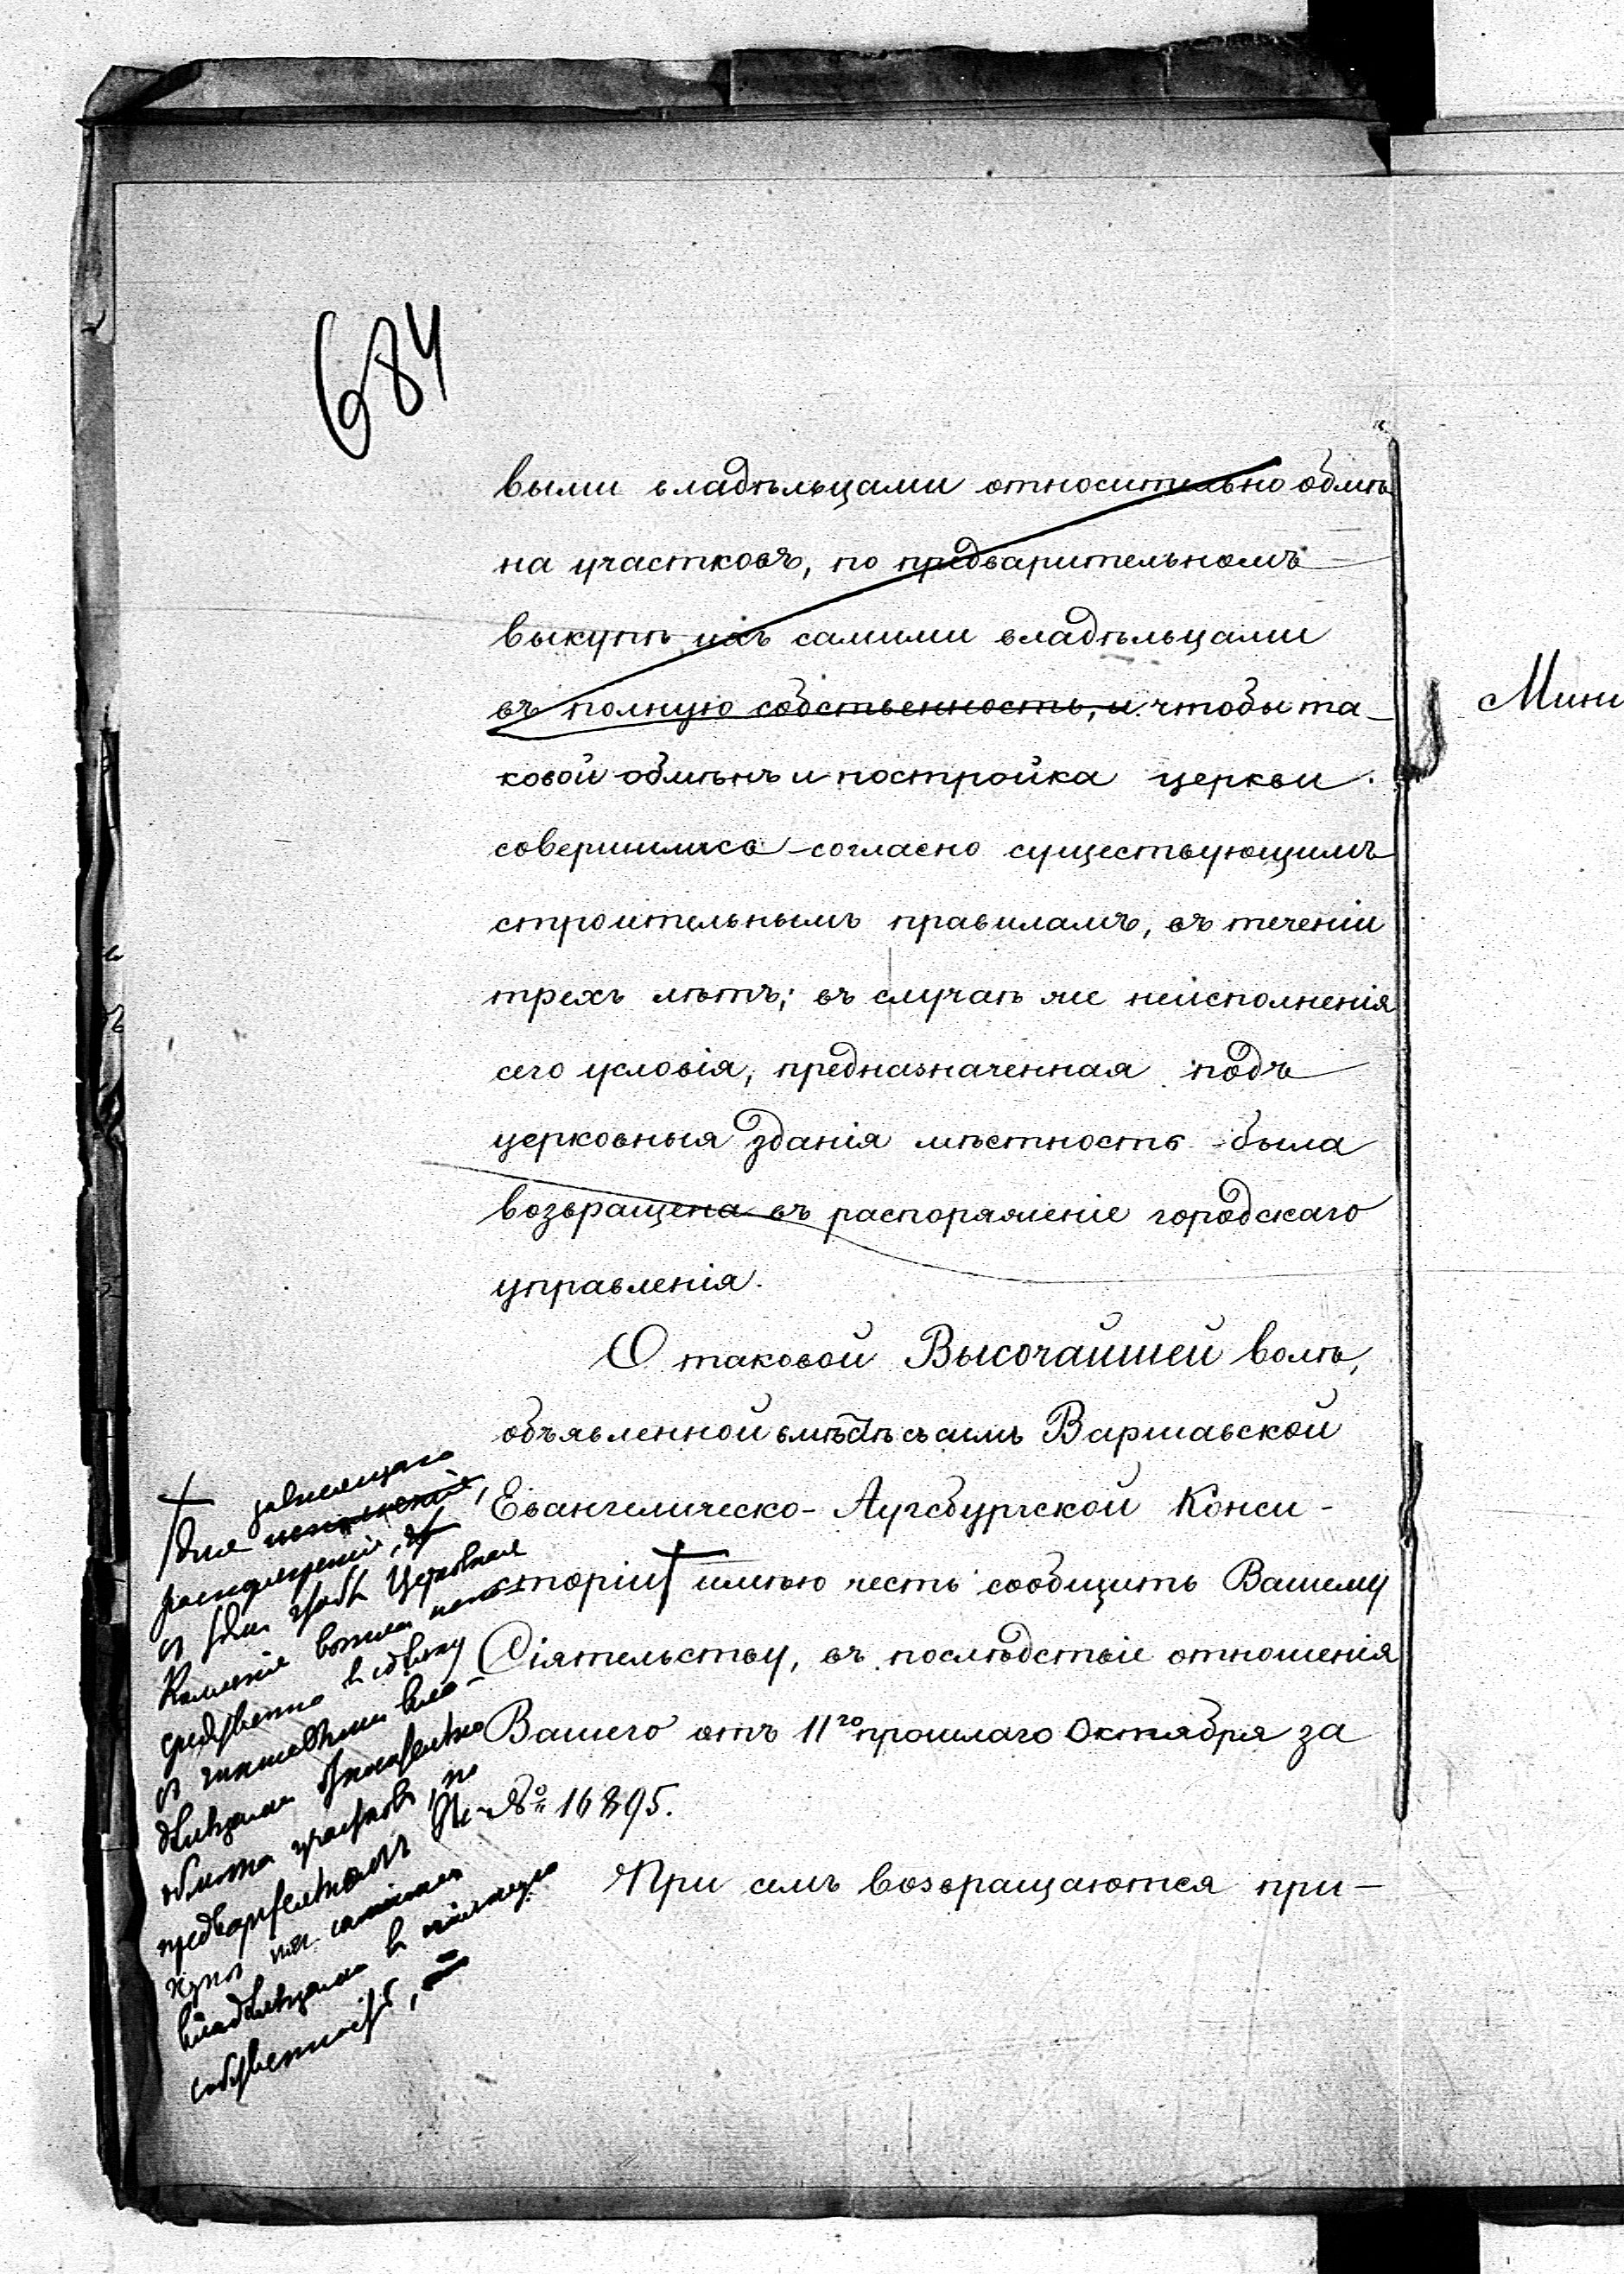 684
выми владѣльцами относительно обмѣ
на участковъ, по предварительномъ
выкупѣ ихъ самими владѣльцами
въ полную собственность, и чтобы та-
ковой обмѣнъ и постройка церкви
совершились согласно существующимъ
строительнымъ правиламъ, въ теченіи
трехъ лѣтъ; въ случаѣ же неисполненія
сего условія, предназначенная подъ
церковныя зданія мѣстность была
возвращена въ распоряженіе городскаго
управленія.
О таковой Высочайшей волѣ,
объявленной вмѣстѣ съ симъ Варшавской
Евангелическо-Аугсбургской Конси-
сторіи † имѣю честь сообщить Вашему
Сіятельству, въ послѣдствіе отношенія
Вашего отъ 11го прошлаго Октября за
№ 16895.
При семъ возвращаются при-
† зависящаго
для исполненія,
распоряженія,
и чтобы Церковная
Коллегія вошла непо-
средственно въ сдѣлку
съ чиншевыми вла-
дѣльцами относительно
обмѣна участковъ, по
предварительномъ вы-
купѣ ихъ самими
владѣльцами въ полную
собственность,
Мини